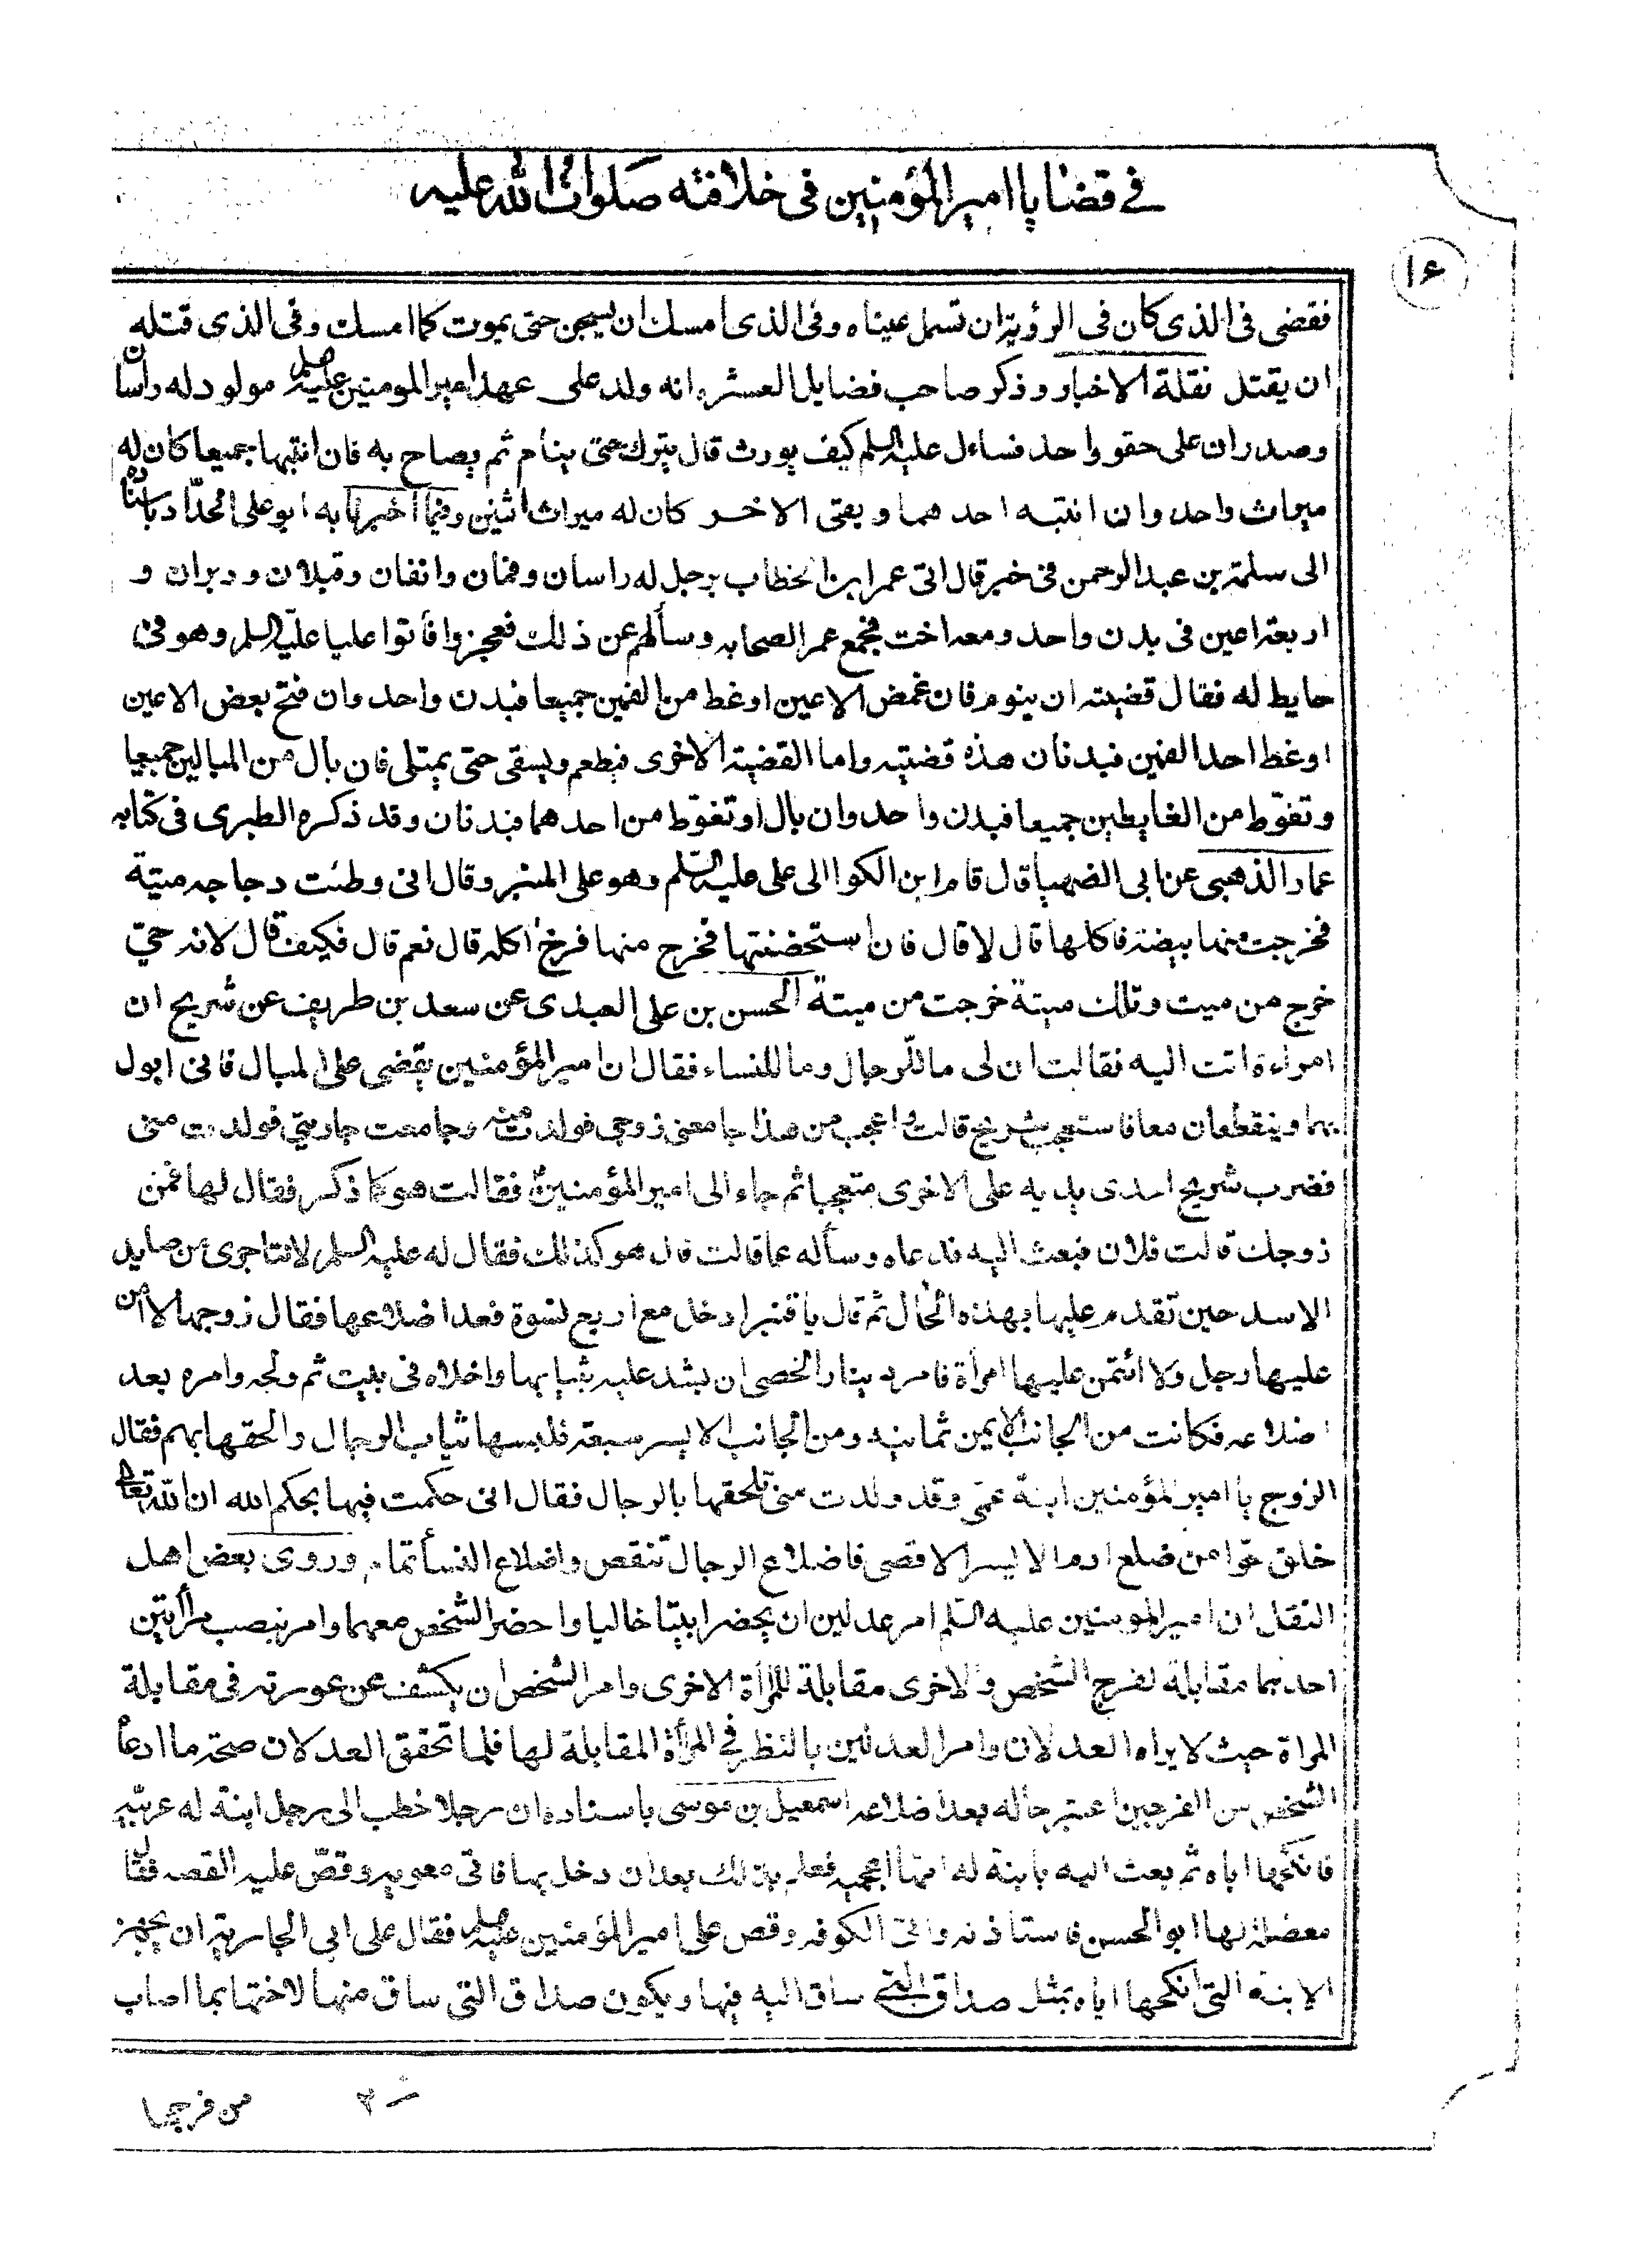 في قضايا امير المؤمنين في خلافته صلوات الله عليه
١٦
فقضى فى الذى كان فى الرؤية ان تسمل عيناه وفى الذى امسك ان يسجن حتى يموت كما امسك وفى الذى قتله
ان يقتل نقلة الاخبار وذكر صاحب فضايل العشره انه ولد على عهد امير المومنين عليه مولود له راسان
وصدران على حقو واحد فساءل عليه السلم كيف يورث قال يترك حتى ينام ثم يصاح به فان انتبها جميعا كان له
ميراث واحد وان انتبه احدهما وبقى الاخر كان له ميراث اثنين وفيما اخبرنا به ابو على الحدّاد باسناده
الى سلمة بن عبد الرحمن فى خبر قال اتى عمر ابن الخطاب برجل له راسان وفمان وانفان وقبلان ودبران و
اربعة اعين فى بدن واحد ومعه اخت فجمع عمر الصحابه وسألهم عن ذلك فعجزوا فأتوا عليا عليه السلم وهو فى
حايط له فقال قضيته ان ينوم فان غمض الاعين او غط من الفمين جميعا فبدن واحد وان فتح بعض الاعين
او غط احد الفمين فبدنان هذه قضيته واما القضية الاخرى فيطعم ويسقى حتى يمتلى فان بال من المبالين جميعا
وتغوّط من الغايطين جميعا فبدن واحد وان بال او تغوّط من احدهما فبدنان وقد ذكره الطبرى فى كتابه
عمار الذهبى عن ابى الصهبا قال قام ابن الكوا الى على عليه السّلم وهو على المنبر وقال انى وطئت دجاجه ميتة
فخرجت منها بيضة فاكلها قال لا قال فان استحضنتها فخرج منها فرخ اكله قال نعم قال فكيف قال لانه حىّ
خرج من ميت وتلك ميتة خرجت من ميتة الحسن بن على العبدى عن سعد بن طريف عن شريح ان
امراءة اتت اليه فقالت ان لى ما للرجال وما للنساء فقال ان امير المؤمنين يقضى على المبال فانى ابول
بهما وينقطعان معا فاستعجب شريح قالت واعجب من هذا جامعنى زوجى فولدت منه وجامعت جاريتى فولدت منى
فضرب شريح احدى يديه على الاخرى متعجبا ثم جاء الى امير المؤمنين فقالت هو كما ذكر فقال لها فمن
زوجك قالت فلان فبعث اليه فدعاه وسأله عما قالت قال هو كذلك فقال له عليه السلم لانت اجرى من صايد
الاسد حين تقدم عليها بهذه الحال ثم قال يا قنبر ادخل مع اربع نسوة فعد اضلاعها فقال زوجها لا امن
عليها رجل ولا ائتمن عليها امرأة فامر دينارا الخصى ان يشد عليه ثيابها واخلاه فى بيت ثم ولجه وامره بعد
اضلاعه فكانت من الجانب الايمن ثمانيه ومن الجانب الايسر سبعة فلبسها ثياب الرجال والحقها بهم فقال
الزوج يا امير المؤمنين ابنة عمى وقد ولدت منى تلحقها بالرجال فقال انى حكمت فيها بحكم الله ان الله تعالى
خلق حوّا من ضلع ادم الايسر الاقصى فاضلاع الرجال تنقص واضلاع النسأ تمام وروى بعض اهل
النقل ان امير المومنين عليه السّلم امر عدلين ان يحضرا بيتا خاليا واحضر الشخص معهما وامر بنصب مرأتين
احديهما مقابلة لفرج الشخص والاخرى مقابلة للمرأة الاخرى وامر الشخص ان يكشف عن عورته فى مقابلة
المراة حيث لا يراه العدلان وامر العدلين بالنظر في المرأة المقابلة لها فلما تحقق العدلان صحة ما ادعا
الشخص من الفرجين اعتبر حاله بعد اضلاعه اسمعيل بن موسى باسناده ان رجلا خطب الى رجل ابنة له عربيه
فانكحها اياه ثم بعث اليه بابنة له امها اعجميه فعلم بذلك بعد ان دخل بها فاتى معويه وقصّ عليه القصه فقال
معضلة لها ابو الحسن فاستاذنه واتى الكوفه وقص على امير المؤمنين عليه فقال على ابى الجارية ان يجهز
الابنة التى انكحها اياه بمثل صداق التى ساق اليه فيها ويكون صداق التى ساق منها لاختها بما اصاب
من فرجها